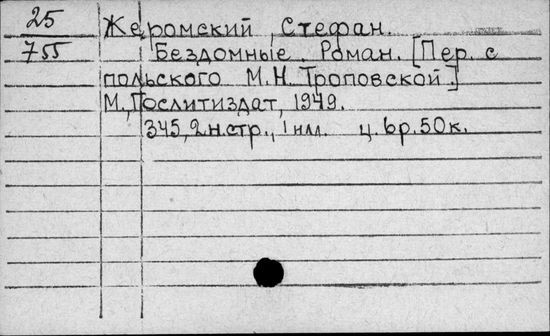 25 Жеромский, Стефан.
755 Бездомные. Роман. [Пер. с
польского М.Н. Троповской]
М., Гослитиздат, 1949.
345, 2 н. стр., 1 илл. ц. 6р. 50к.